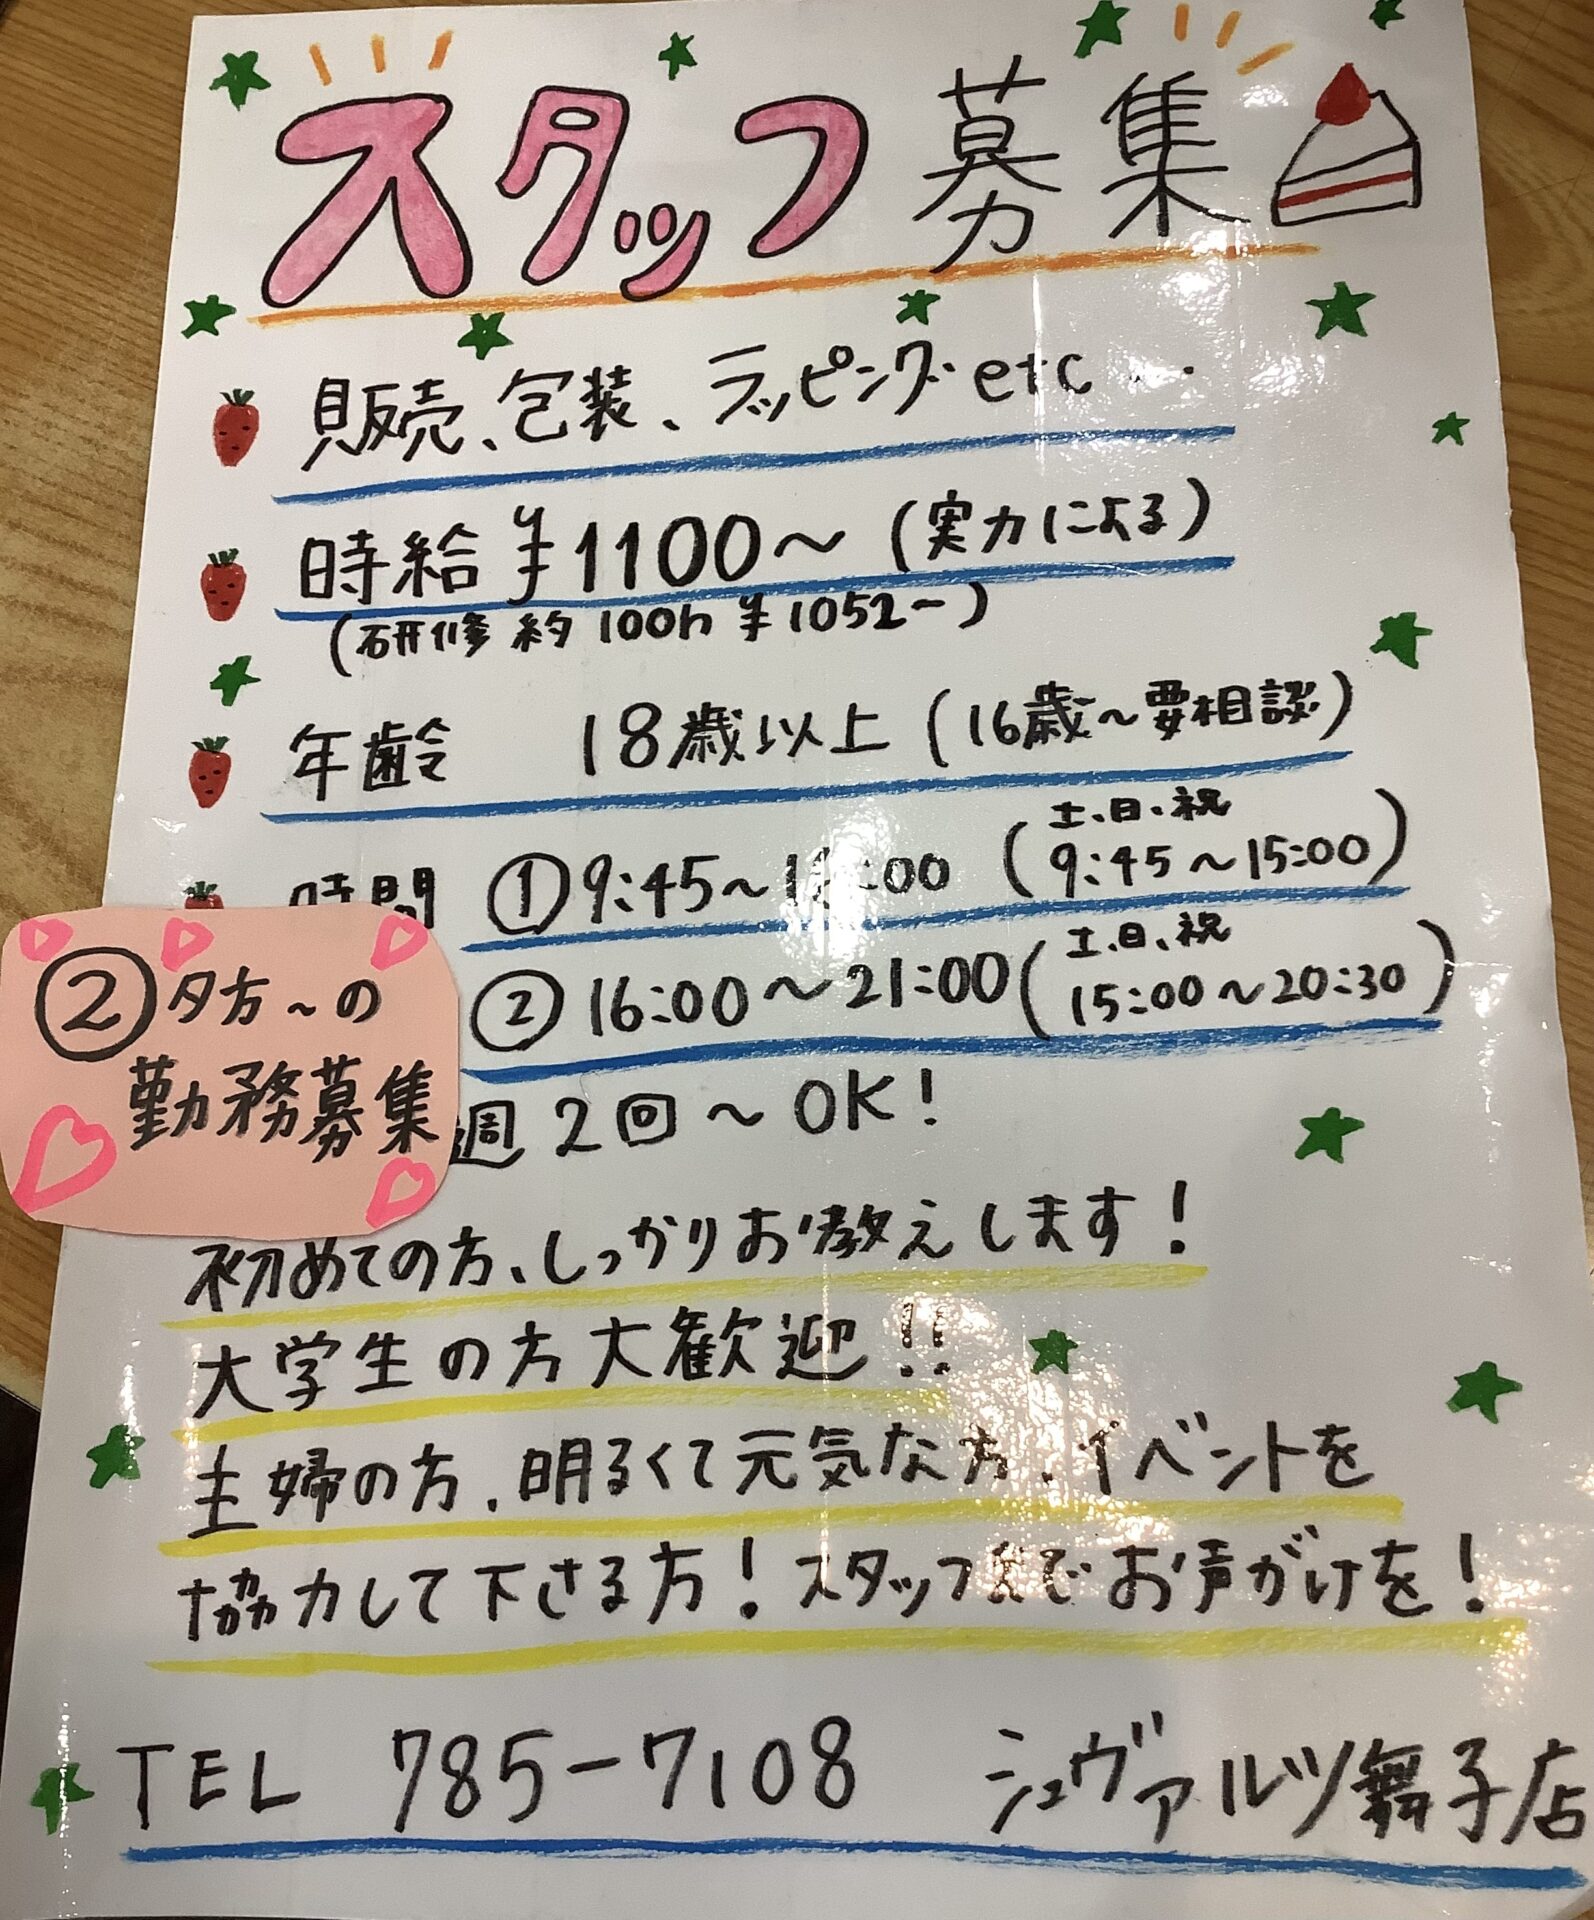 スタッフ募集
販売、包装、ラッピング etc...
時給 ¥1100〜 (実力による)
(研修 約100h ¥1052〜)
年齢 18歳以上 (16歳〜要相談)
時間 ①9:45〜 :00 (土、日、祝 9:45〜15:00)
②16:00〜21:00 (土、日、祝 15:00〜20:30)
②夕方〜の
勤務募集
週2回〜OK!
初めての方、しっかりお教えします!
大学生の方大歓迎!!
主婦の方、明るくて元気な方、イベントを
協力して下さる方!スタッフまでお声がけを!
TEL 785-7108 シュヴァルツ舞子店